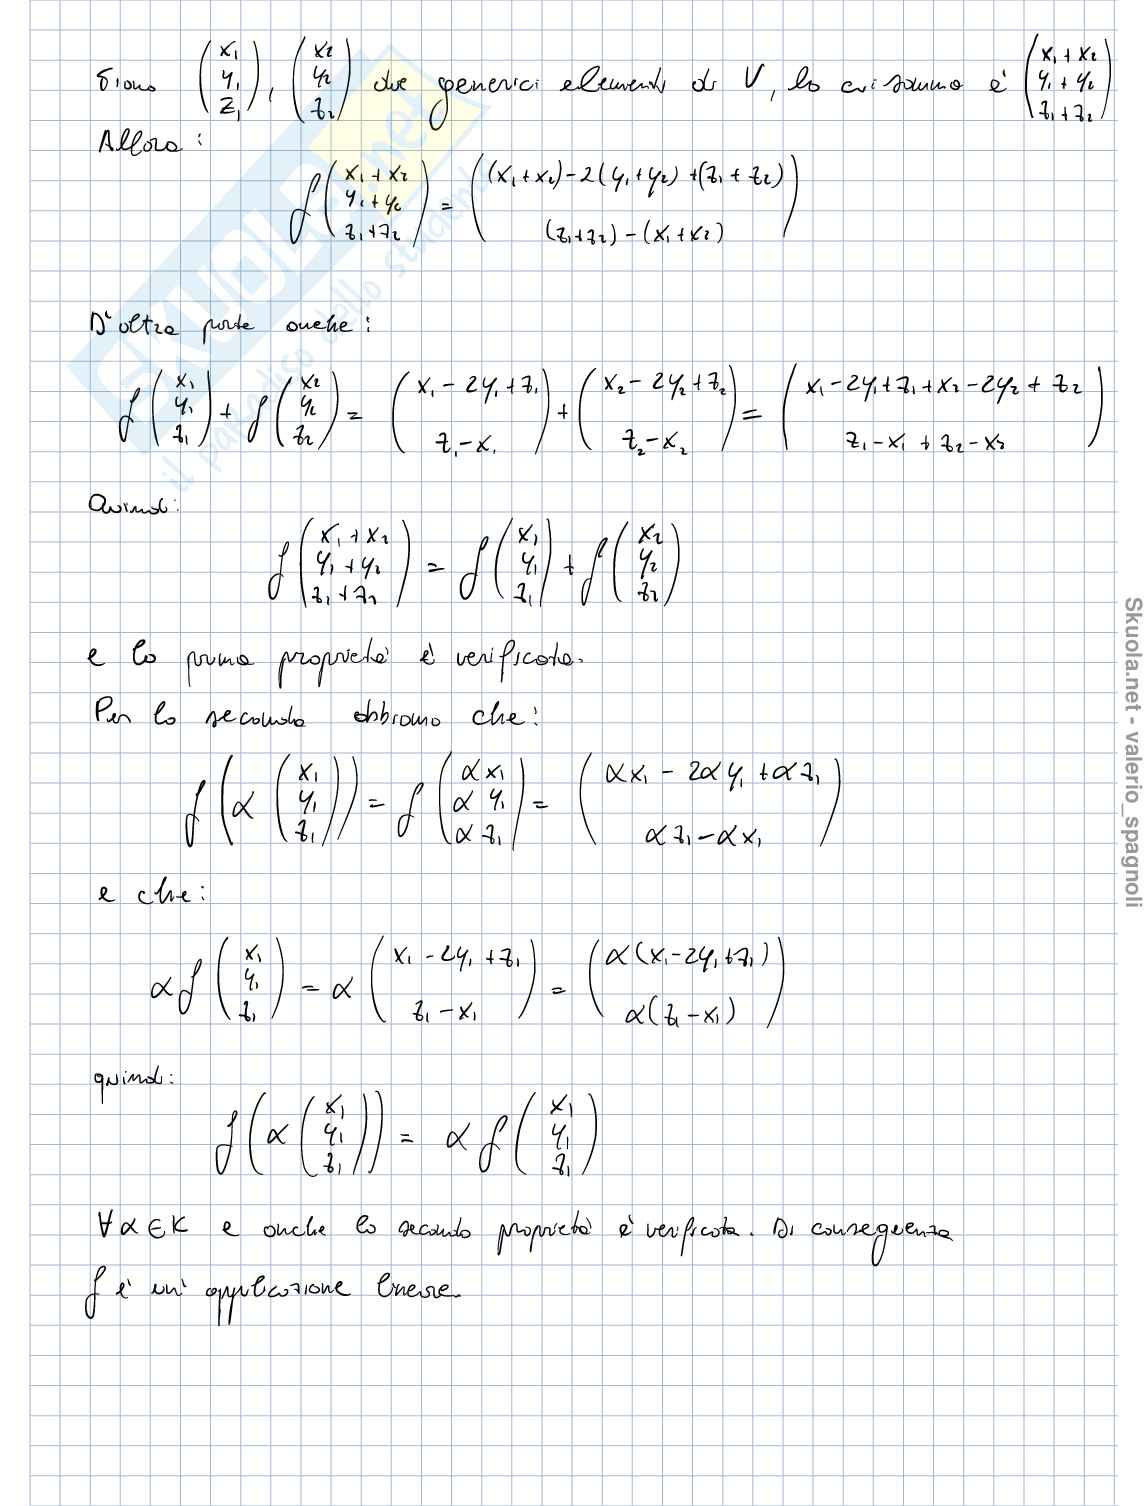 Siano (x₁ y₁ z₁), (x₂ y₂ z₂) due generici elementi di V, la cui somma è (x₁+x₂ y₁+y₂ z₁+z₂)
Allora:
f(x₁+x₂ y₁+y₂ z₁+z₂) = ((x₁+x₂)-2(y₁+y₂)+(z₁+z₂) (z₁+z₂)-(x₁+x₂))
D'altra parte anche:
f(x₁ y₁ z₁) + f(x₂ y₂ z₂) = (x₁-2y₁+z₁ z₁-x₁) + (x₂-2y₂+z₂ z₂-x₂) = (x₁-2y₁+z₁+x₂-2y₂+z₂ z₁-x₁+z₂-x₂)
Quindi:
f(x₁+x₂ y₁+y₂ z₁+z₂) = f(x₁ y₁ z₁) + f(x₂ y₂ z₂)
e la prima proprietà è verificata.
Per la seconda abbiamo che:
f(α(x₁ y₁ z₁)) = f(αx₁ αy₁ αz₁) = (αx₁-2αy₁+αz₁ αz₁-αx₁)
e che:
αf(x₁ y₁ z₁) = α(x₁-2y₁+z₁ z₁-x₁) = (α(x₁-2y₁+z₁) α(z₁-x₁))
quindi:
f(α(x₁ y₁ z₁)) = αf(x₁ y₁ z₁)
∀α∈K e anche la seconda proprietà è verificata. Di conseguenza
f è un' applicazione lineare.
SKUOLA.net
il paradiso dello studente
Skuola.net - valerio_spagnoli